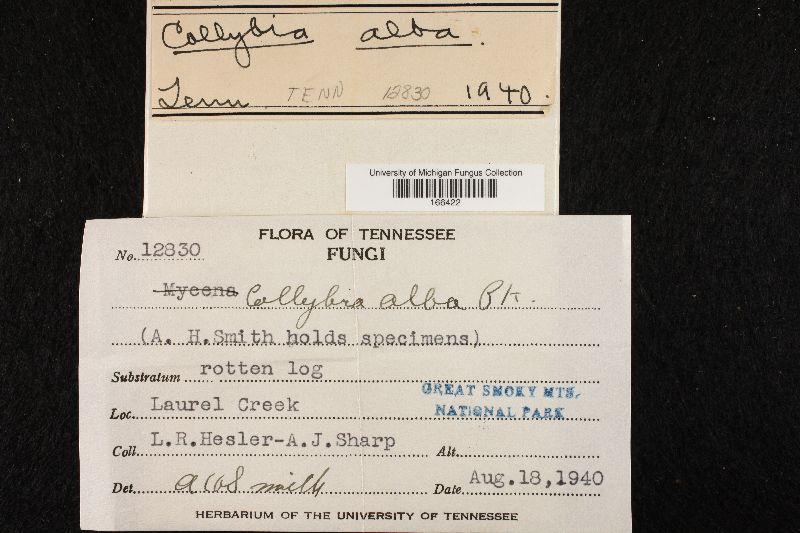 Collybia alba.
Tenn TENN 12830 1940.
University of Michigan Fungus Collection
166422
FLORA OF TENNESSEE
No. 12830 FUNGI
Mycena Collybia alba Pk.
(A. H.Smith holds specimens)
Substratum rotten log
GREAT SMOKY MTS.
NATIONAL PARK
Loc. Laurel Creek
Coll. L.R.Hesler-A.J.Sharp Alt.
Det. AHSmith Date Aug.18,1940
HERBARIUM OF THE UNIVERSITY OF TENNESSEE